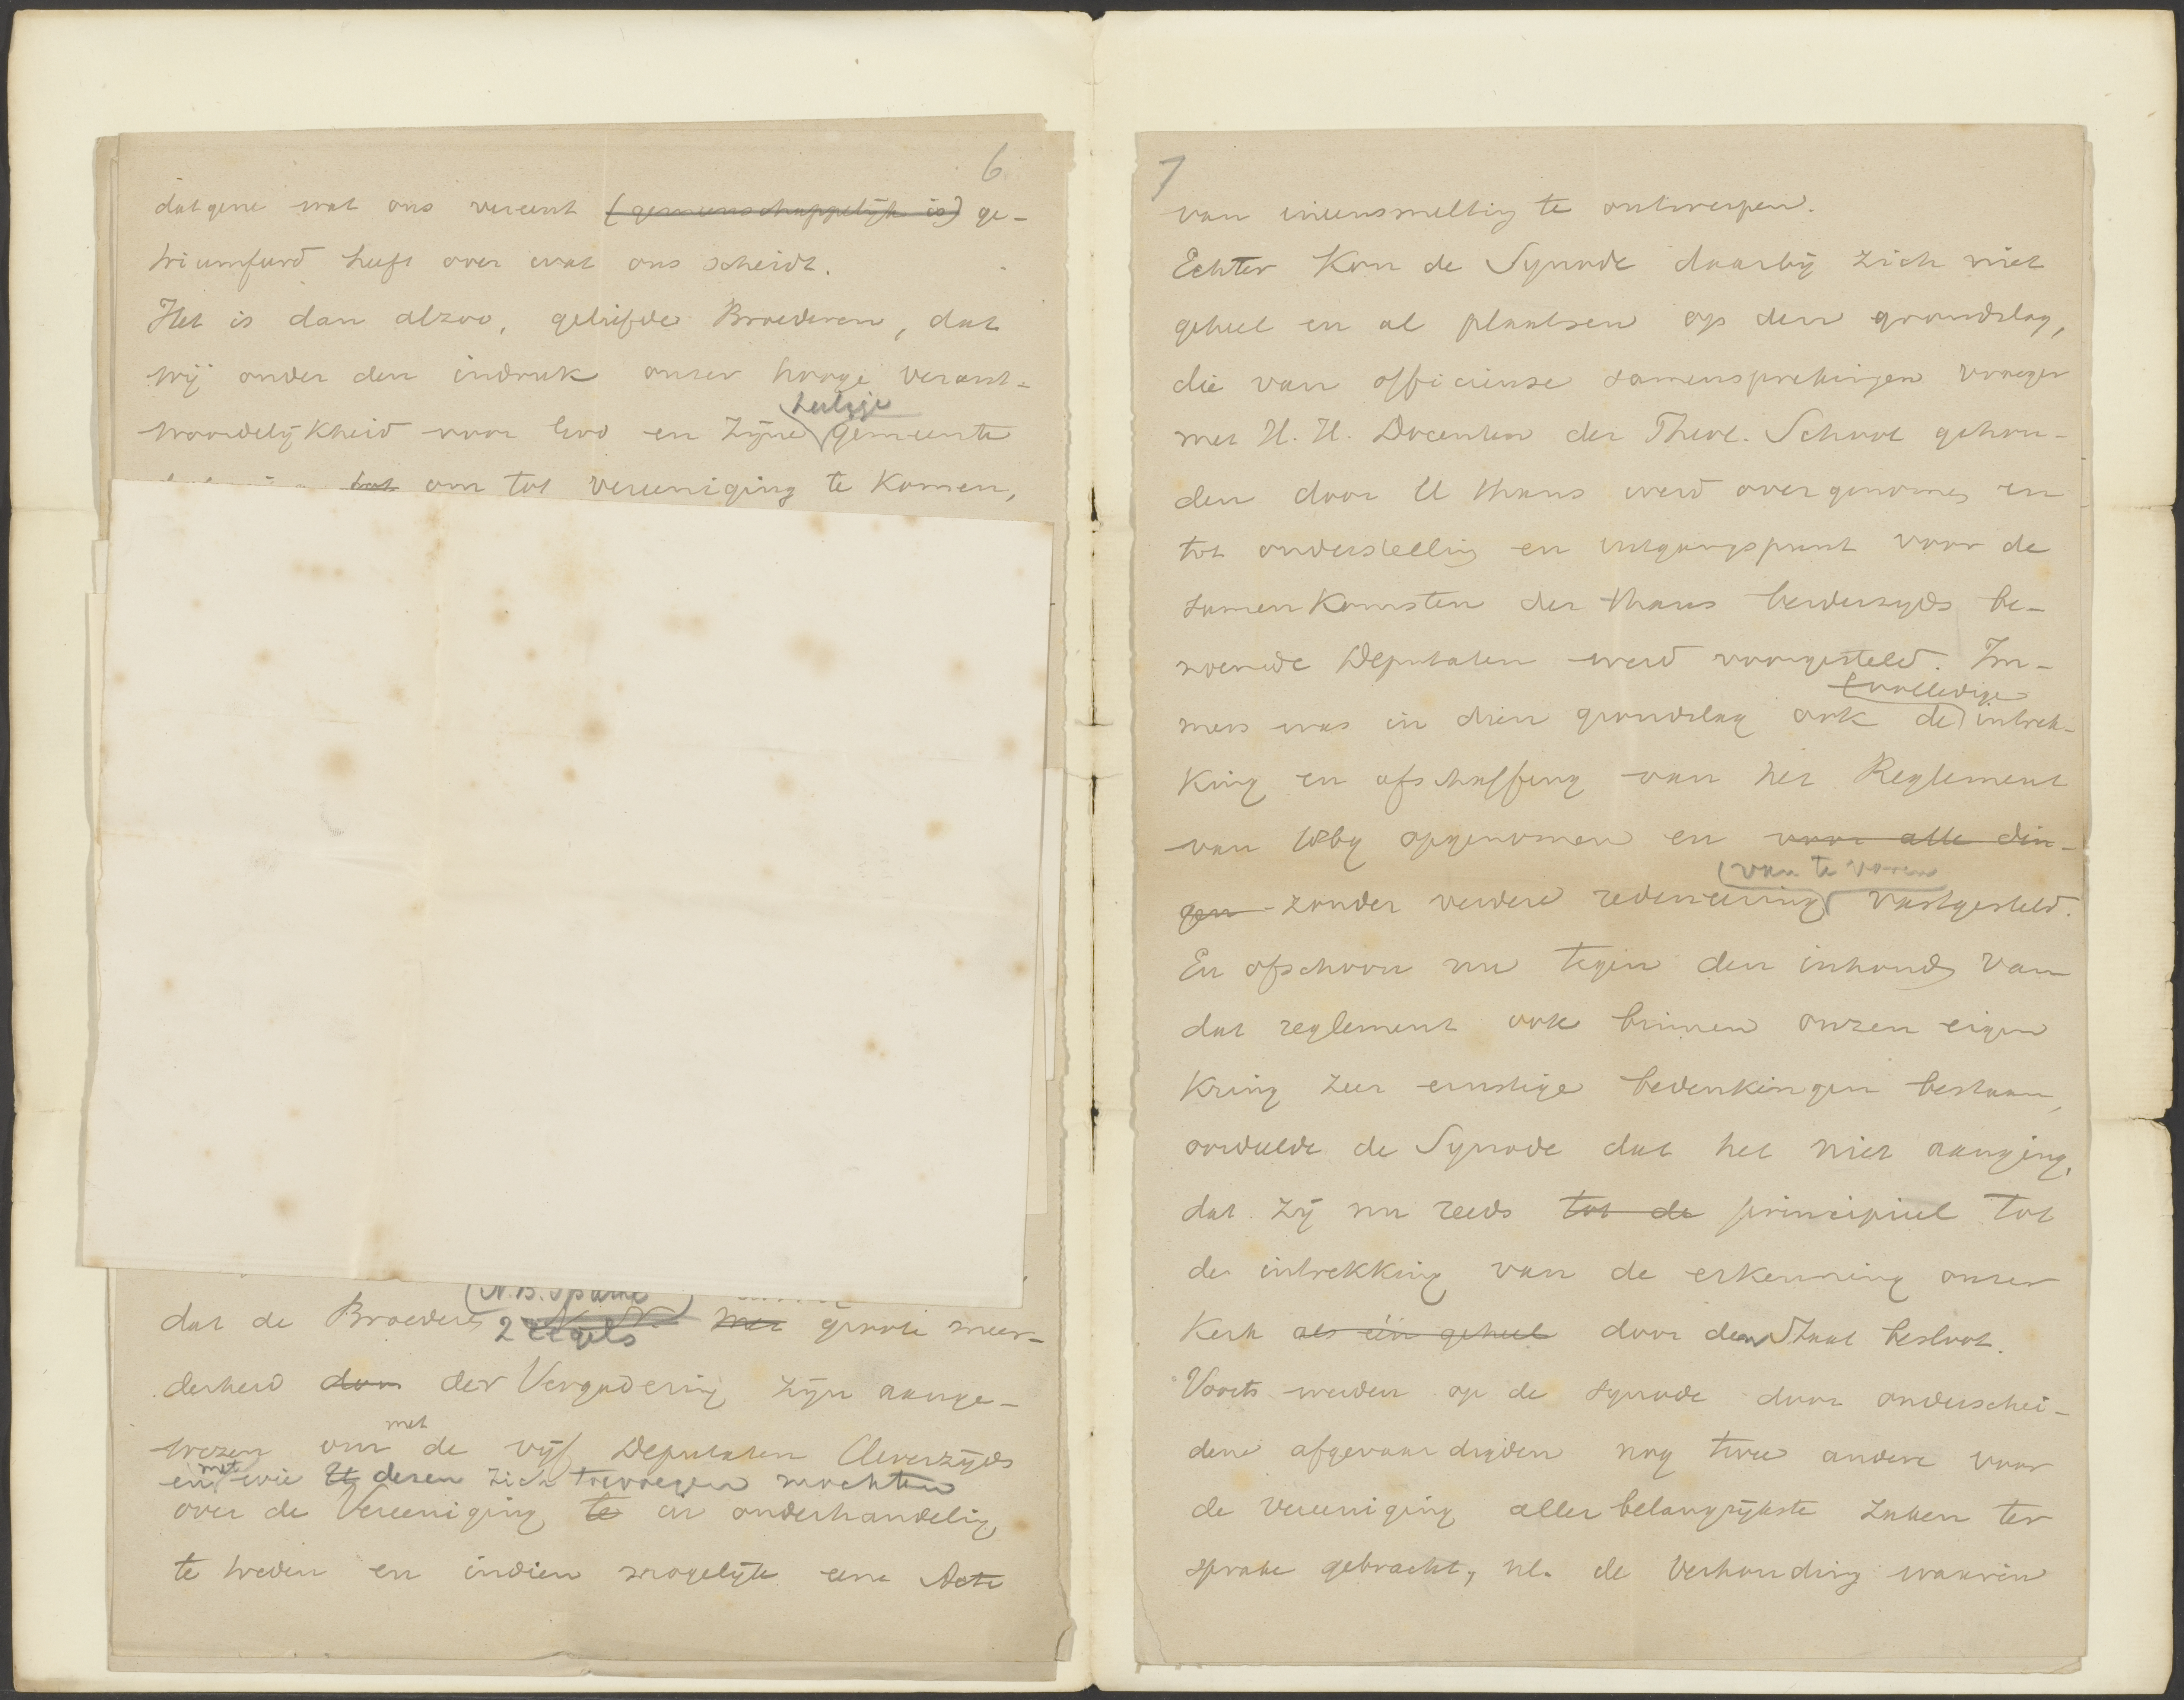 6
datgene wat ons vereent (gemeenschappelijk is) ge-
triumfeerd heeft over wat ons scheidt.
Het is dan alzoo, geliefde Broederen, dat
wij onder den indruk onzer hooge verant-
heilige
woordelijkheid voor God en Zijne gemeente
tot om tot vereeniging te komen,
(N.B. Spatie
dat de Broeders N. N. met groote meer-
2 regels
derheid don der Vergadering zijn aange-
met
wezen om de vijf Deputaten Uwerzijds
met
en wie U dezen zich toevoegen mochten
over de Vereeniging te in onderhandeling
te treden en indien mogelijk eene Acte
7
van ineensmelting te ontwerpen.
Echter kon de Synode daarbij zich niet
geheel en al plaatsen op den grondslag,
die van officieuse samensprekingen vroeger
met H.H. Docenten der Theol. School gehou-
den door U thans werd overgenomen en
tot onderstelling en uitgangspunt voor de
samenkomsten der thans bederzijds be-
noemde Deputaten werd voorgesteld. Im-
(volledige
mers was in dien grondslag ook de intrek-
king en afschaffing van het Reglement
van 1869 opgenomen en voor alle din-
(van te voren
gen zonder verdere redeneering vastgesteld.
En ofschoon nu tegen den inhoud van
dat reglement ook binnen onzen eigen
Kring zeer ernstige bedenkingen bestaan,
oordeelde de Synode dat het niet aanging,
dat zij nu reeds tot de principieel tot
de intrekking van de erkenning onzer
Kerk als één geheel door den Staat besloot.
Voorts werden op de Synode door onderschei-
dene afgevaardigden nog twee andere voor
de vereeniging allerbelangrijkste zaken ter
sprake gebracht, nl. de verhouding waarin